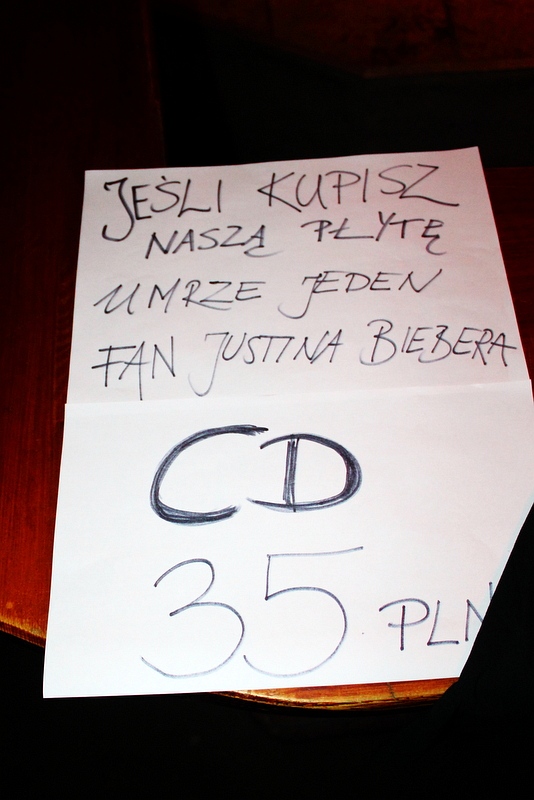 JEŚLI KUPISZ
NASZĄ PŁYTĘ
UMRZE JEDEN
FAN JUSTINA BIEBERA
CD
35 PLN